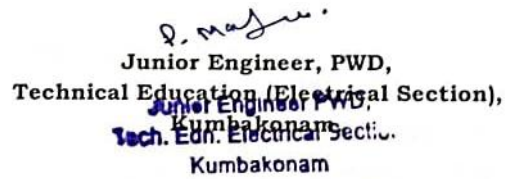 Junior Engineer, PWD,
Technical Education (Electrical Section),
Junior Engineer PWD,
Kumbakonam
Tech. Edn. Electrical Sectio.
Kumbakonam